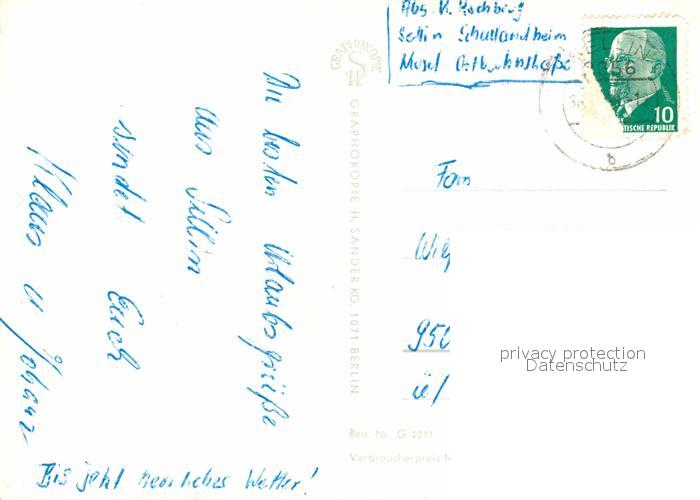 Die besten Urlaubsgrüße
aus Sellin
sendet Euch
Klaus u.
Bis jetzt herrliches Wetter!
GRAPHOKOPIE
GRAPHOKOPIE H. SANDER KG, 1071 BERLIN
Best. Nr. G 2211
Verbraucherpreis M
Abs. K. Hochberg
Sellin Schullandheim
Mosel
10
TISCHE REPUBLIK
b
Fam
950
privacy protection
Datenschutz